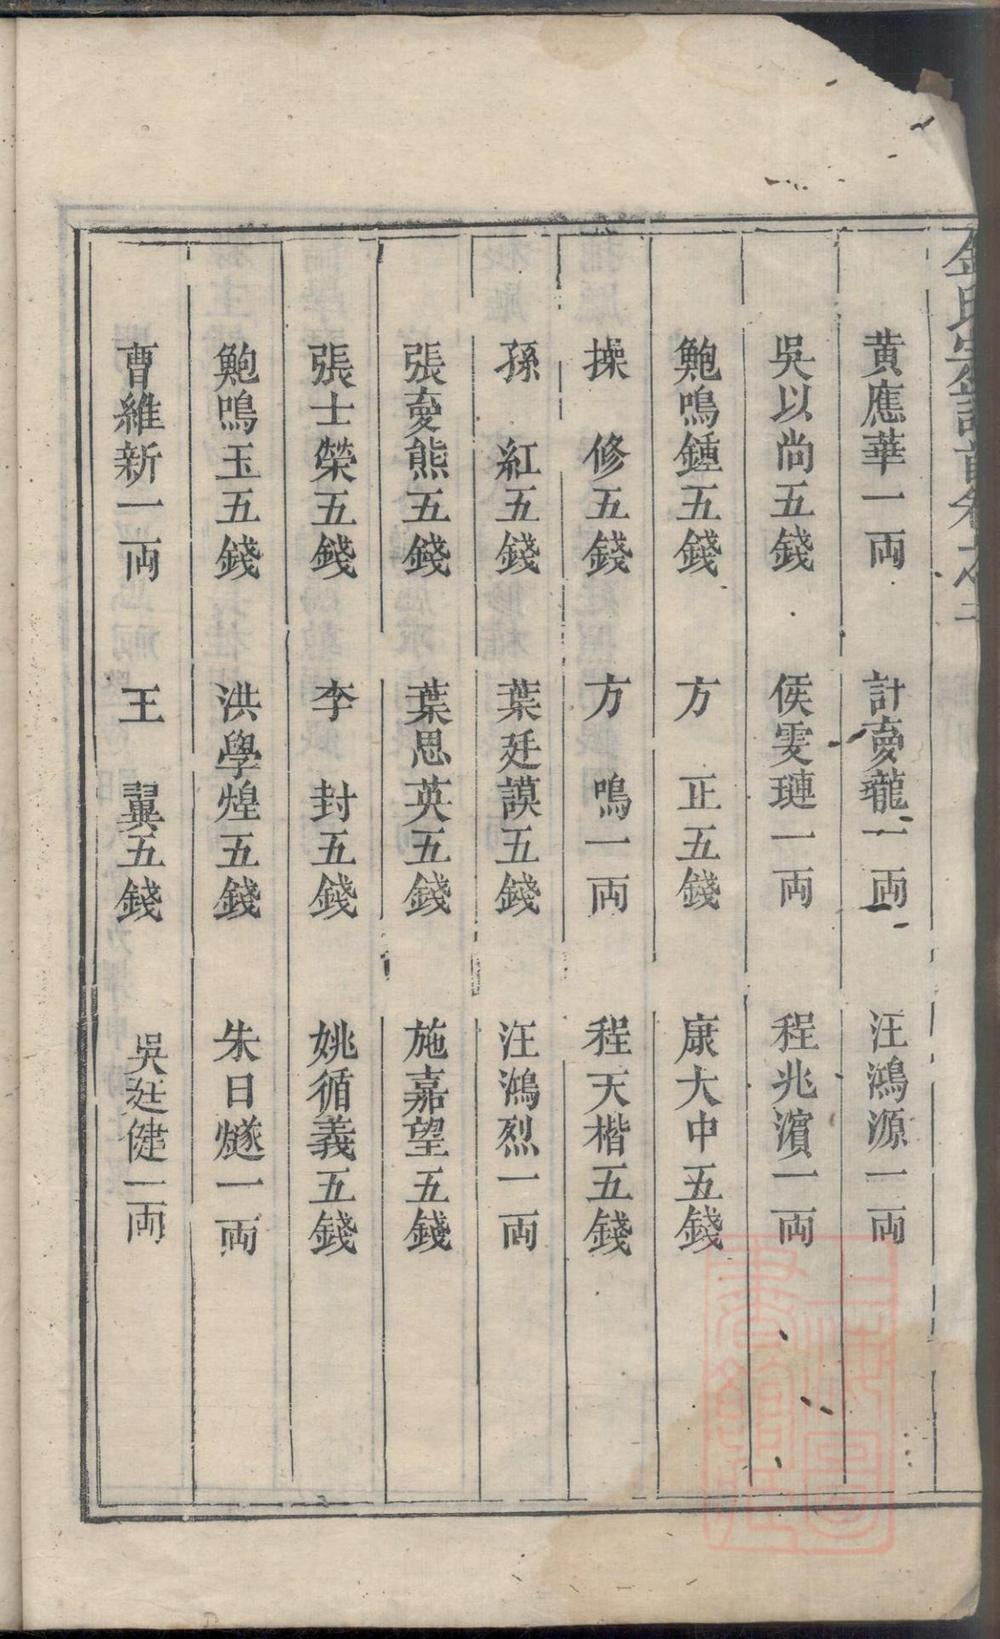 金氏宗譜首卷之二
黄應華一両　計夢龍一両　汪鴻源一両
吳以尚五錢　侯雯璉一両　程兆濱一両
鮑鳴鍾五錢　方　正五錢　康大中五錢
操　修五錢　方　鳴一両　程天楷五錢
孫　紅五錢　葉廷謨五錢　汪鴻烈一両
張夢熊五錢　葉思英五錢　施嘉望五錢
張士榮五錢　李　封五錢　姚循義五錢
鮑鳴玉五錢　洪學煌五錢　朱日燧一両
曹維新一両　王　翼五錢　吳廷健一両
上海圖書館藏